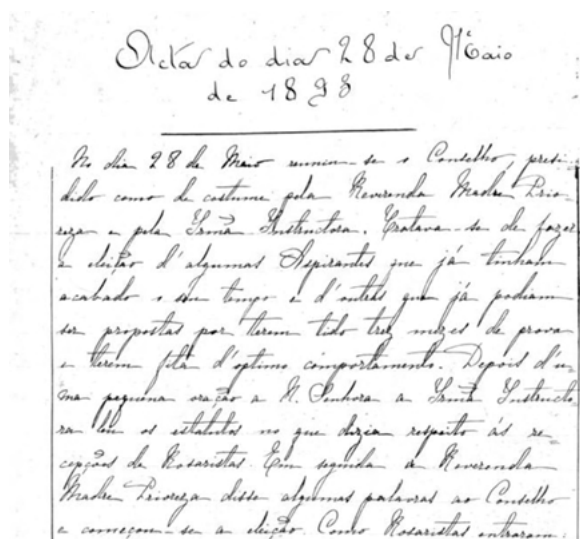 Acta do dia 28 de Maio
de 1898
No dia 28 de Maio reuniu-se o Conselho, presi-
dido como de costume pela Reverenda Madre Prio-
reza e pela Irmã Instructora. Tratava-se de fazer
a eleição d'algumas Aspirantes que já tinham
acabado o seu tempo e d'outras que já podiam
ser propostas por terem tido trez mezes de prova
e terem fita d'optimo comportamento. Depois d'u-
ma pequena oração a N. Senhora a Irmã Instructo-
ra leu os estatutos no que dizia respeito ás re-
cepções de Rosaristas. Em seguida a Reverenda
Madre Prioreza disse algumas palavras ao Conselho
e começou-se a eleição. Como Rosaristas entraram: